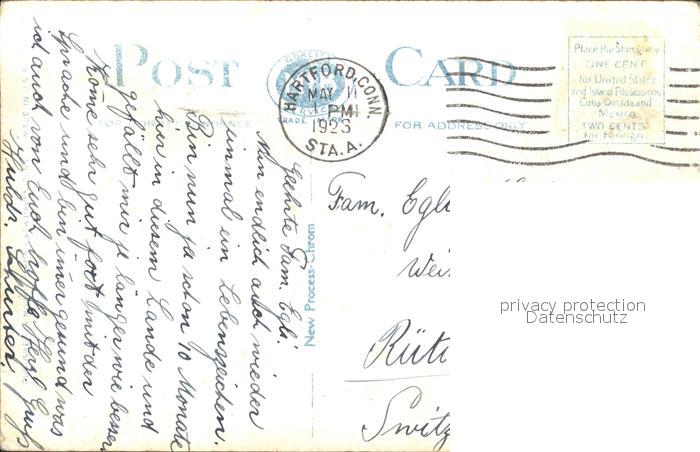 POST CARD
QUALITY
SERVICE
TRADE MARK
HARTFORD, CONN
MAY 11
1 PM
1923
STA. A.
FOR ADDRESS ONLY
Place the Stamp here
ONE CENT
for United States
and Island Possessions
Cuba, Canada and
Mexico
TWO CENTS
for Foreign
MADE IN U.S.A.
New Process-Chrom
Geehrte Fam. Egli.
Nun endlich auch wieder
einmal ein Lebenszeichen.
Bin nun ja schon 10 Monate
hier in diesem Lande und
gefällt mir je länger wie besser
Kome sehr gut fort mit der
Sprache und bin imer gesund was
ich auch von Euch hoffe. Herzl. Gruß
Fam. Egli
Rüti
Switz
privacy protection
Datenschutz